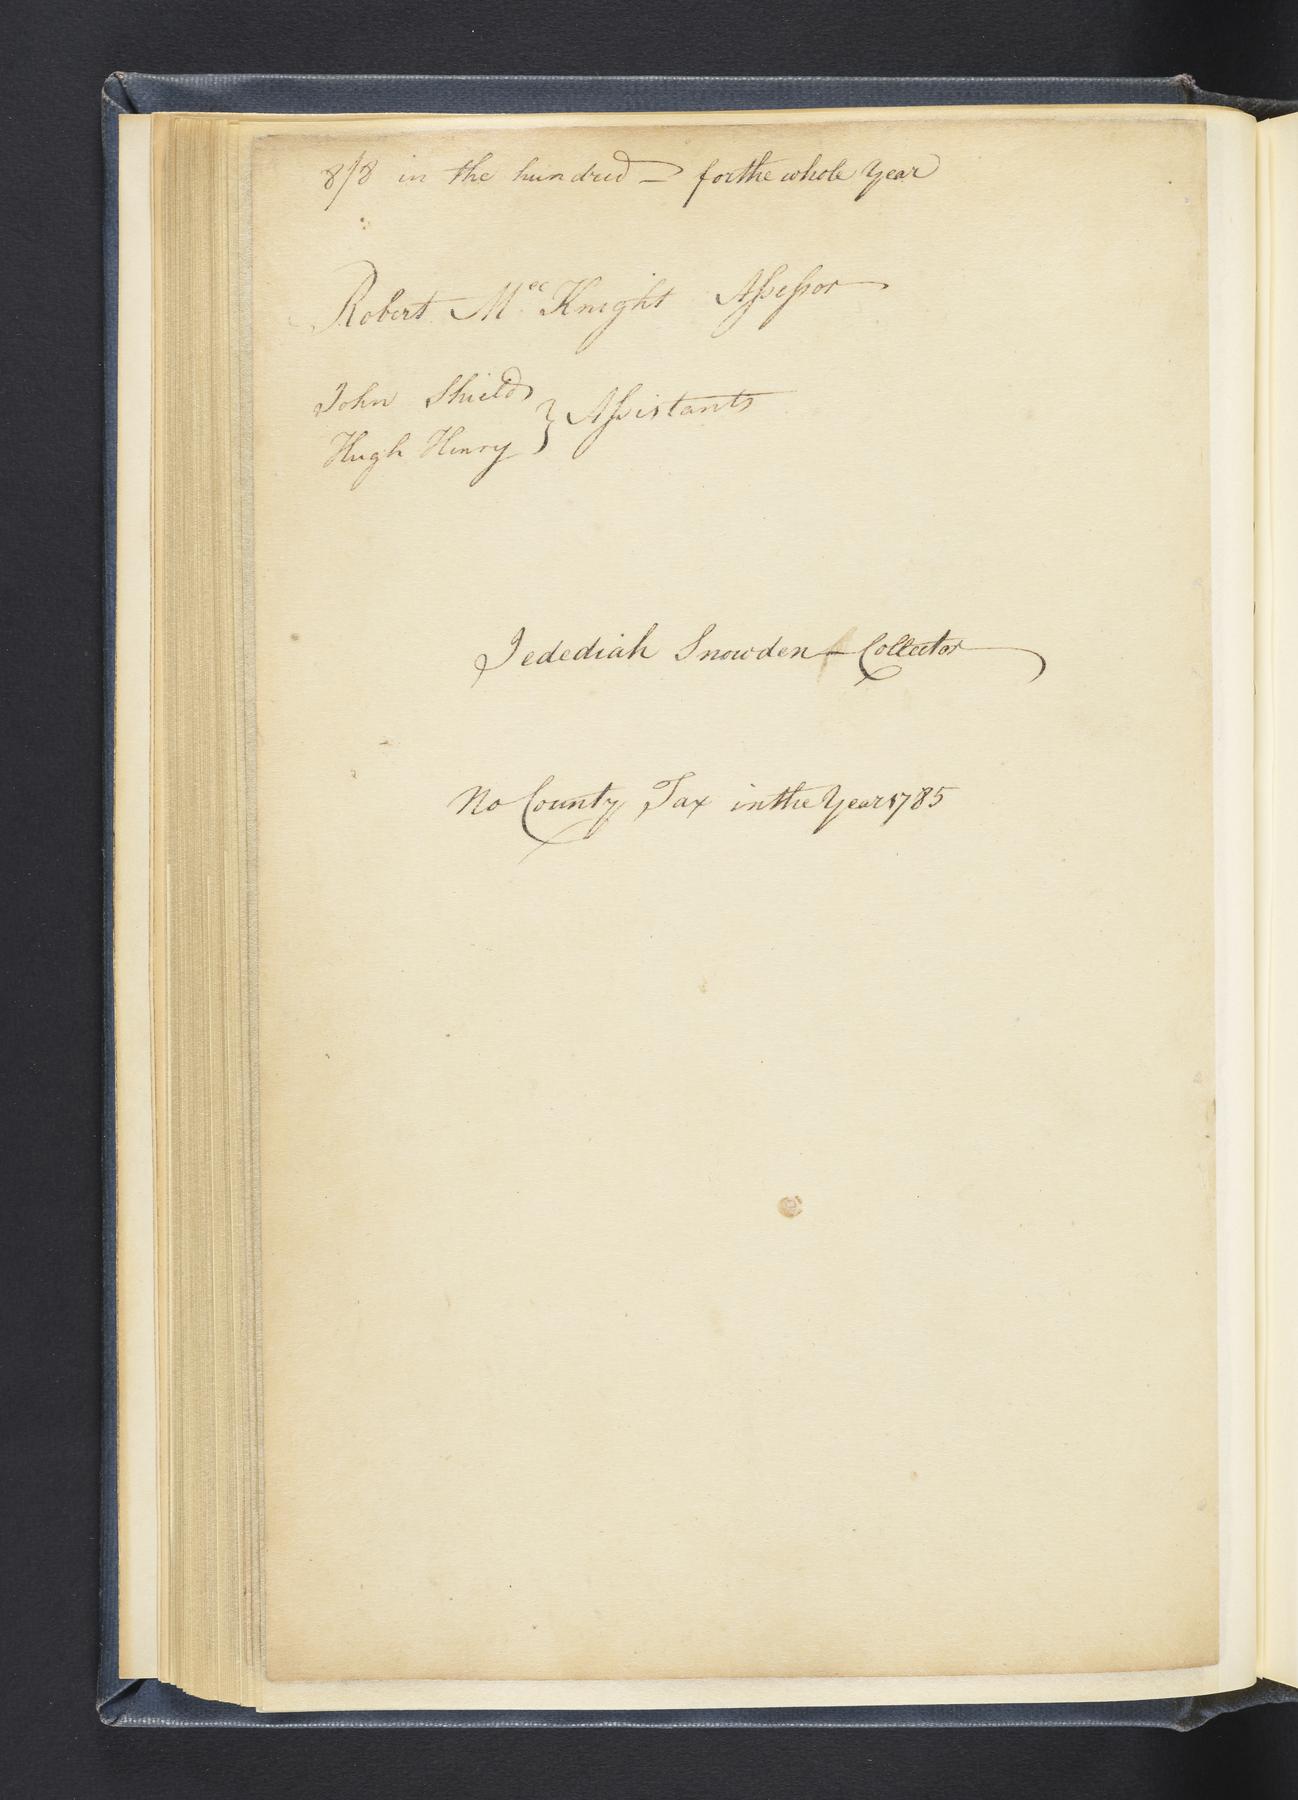 8/8 in the hundred — for the whole Year
Robert Mcc Knight Assessor
John Shields
Hugh Henry } Assistants
Jedediah Snowden — Collector
No County Tax in the Year 1785